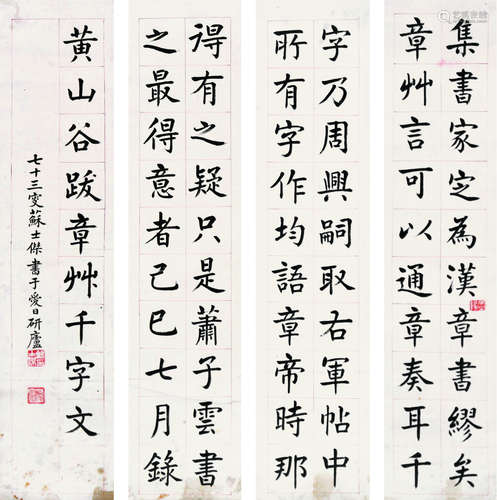 集書家定為漢章書繆矣
章艸言可以通章奏耳千
字乃周興嗣取右軍帖中
所有字作均語章帝時那
得有之疑只是蕭子雲書
之最得意者己巳七月錄
黃山谷跋章艸千字文
七十三叟蘇士傑書于愛日研廬